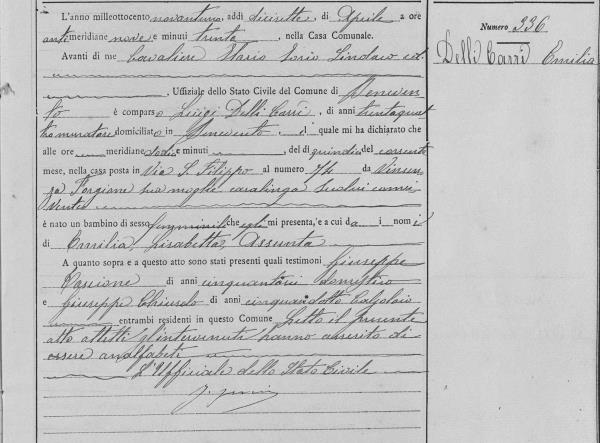 L'anno milleottocento novantuno, addì diciette, di Aprile a ore
antimeridiane nove e minuti trenta, nella Casa Comunale.
Avanti di me Cavaliere Ilario Sorio Sindaco ed
, Uffiziale dello Stato Civile del Comune di Beneven
to è comparso Luigi Delli Carri, di anni trentaquat
tro muratore domiciliato in Benevento, il quale mi ha dichiarato che
alle ore meridiane dodici e minuti , del dì quindici del corrente
mese, nella casa posta in Via S. Filippo al numero 74 da Vincen
za Forgione sua moglie casalinga seco lui convi
vente
è nato un bambino di sesso femminile che egli mi presenta, e a cui da i nomi
di Emilia, Lisabetta, Assunta
A quanto sopra e a questo atto sono stati presenti quali testimoni Giuseppe
di anni cinquantasei domestico
e Giuseppe di anni cinquandotto Calzolaio
entrambi residenti in questo Comune Letto il presente
atto a tutti gl'intervenuti hanno asserito di
essere analfabeti
L'Ufficiale dello Stato Civile
Numero 336
Delli Carri Emilia